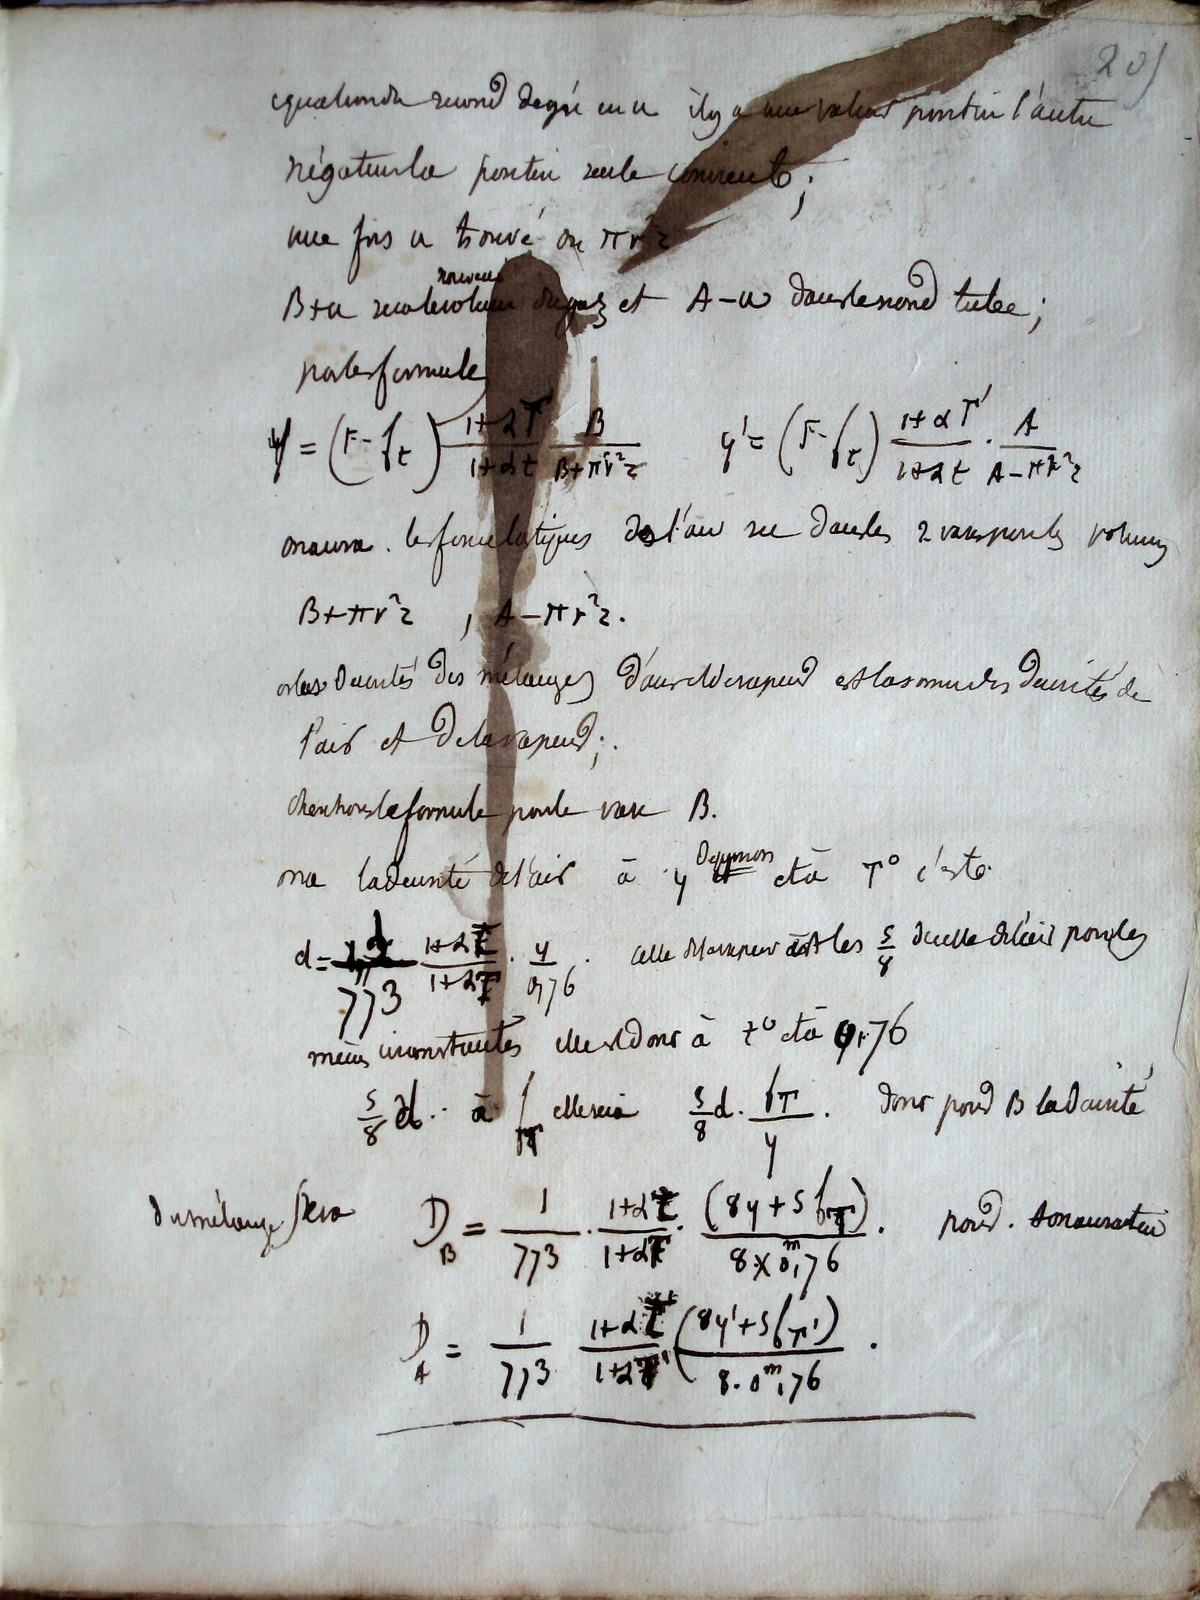 205
equation du second degré en u il y a une valeur positive l'autre
négative la positive seule convient ;
une fois u trouvé ou πr²z
nouveau
B+u sera le volume du gaz et A-u dans le second tube ;
par les formules
y = (F-f_t) (1+αT)/(1+αt) · B/(B+πr²z) y' = (F-f_t) (1+αT')/(1+αt) · A/(A-πr²z)
on aura les forces elastiques de l'air sec dans les 2 vases pour les volumes
B+πr²z , A-πr²z.
or les densités des mélanges d'air et de vapeur est la somme des densités de
l'air et de la vapeur ;
cherchons la formule pour le vase B.
on a la densité de l'air à y et à T° c'est
d = 1/773 (1+αt)/(1+αT) · y/0,76 . celle de la vapeur est les 5/8 de celle de l'air pour les
mêmes circonstances elle est donc à t° et à 0,76
5/8 d .. à f_T elle sera 5/8 d · f_T/y . donc pour B la densité
du mélange sera D_B = 1/773 · (1+αt)/(1+αT) · (8y+5f_T)/(8×0^m,76) . pour A on aura
D_A = 1/773 (1+αt)/(1+αT') (8y'+5f_T')/(8.0^m,76) .